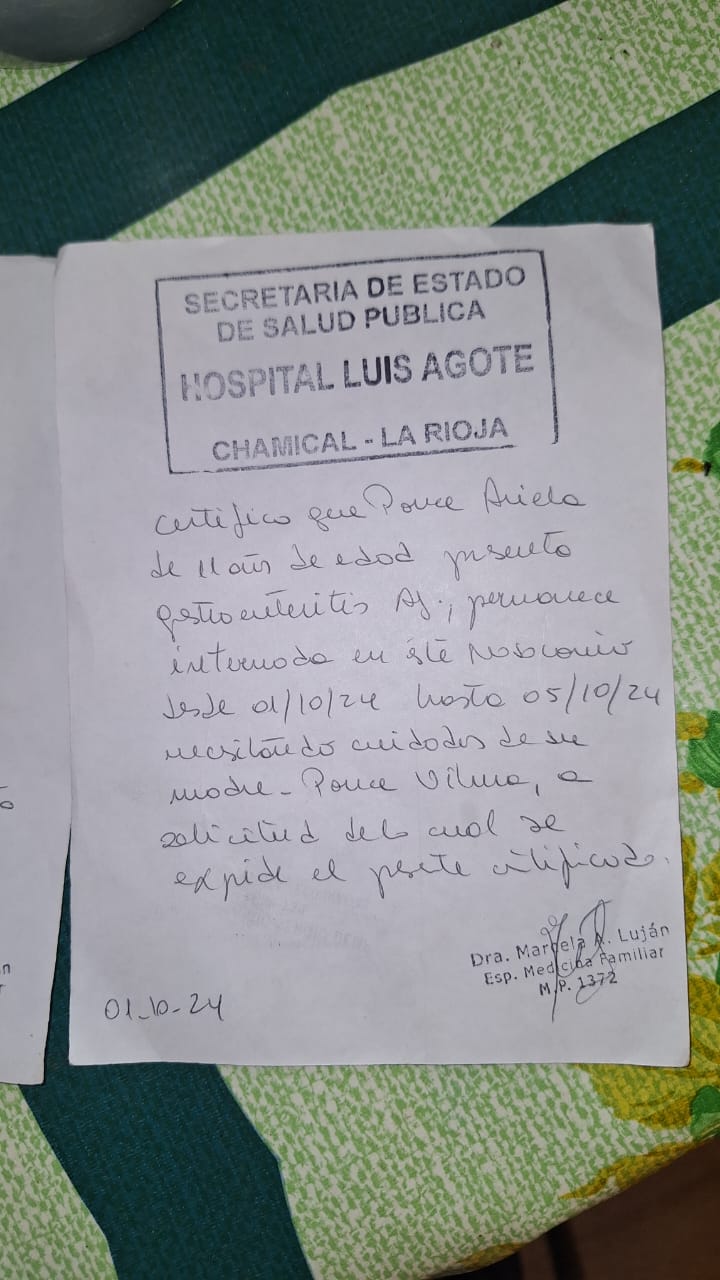 SECRETARIA DE ESTADO
DE SALUD PUBLICA
HOSPITAL LUIS AGOTE
CHAMICAL - LA RIOJA
Certifico que Ponce Ariela
de 11 años de edad presento
gastroenteritis Ag., permanece
internada en éste Nosocomio
desde 01/10/24 hasta 05/10/24
necesitando cuidados de su
madre - Ponce Vilma, a
solicitud de la cual se
expide el presente certificado.
Dra. Marcela A. Luján
Esp. Medicina Familiar
M.P. 1372
01-10-24